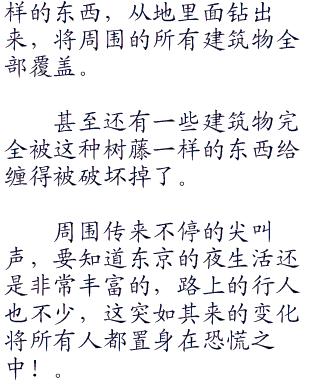 样的东西，从地里面钻出
来，将周围的所有建筑物全
部覆盖。
甚至还有一些建筑物完
全被这种树藤一样的东西给
缠得被破坏掉了。
周围传来不停的尖叫
声，要知道东京的夜生活还
是非常丰富的，路上的行人
也不少，这突如其来的变化
将所有人都置身在恐慌之
中！。